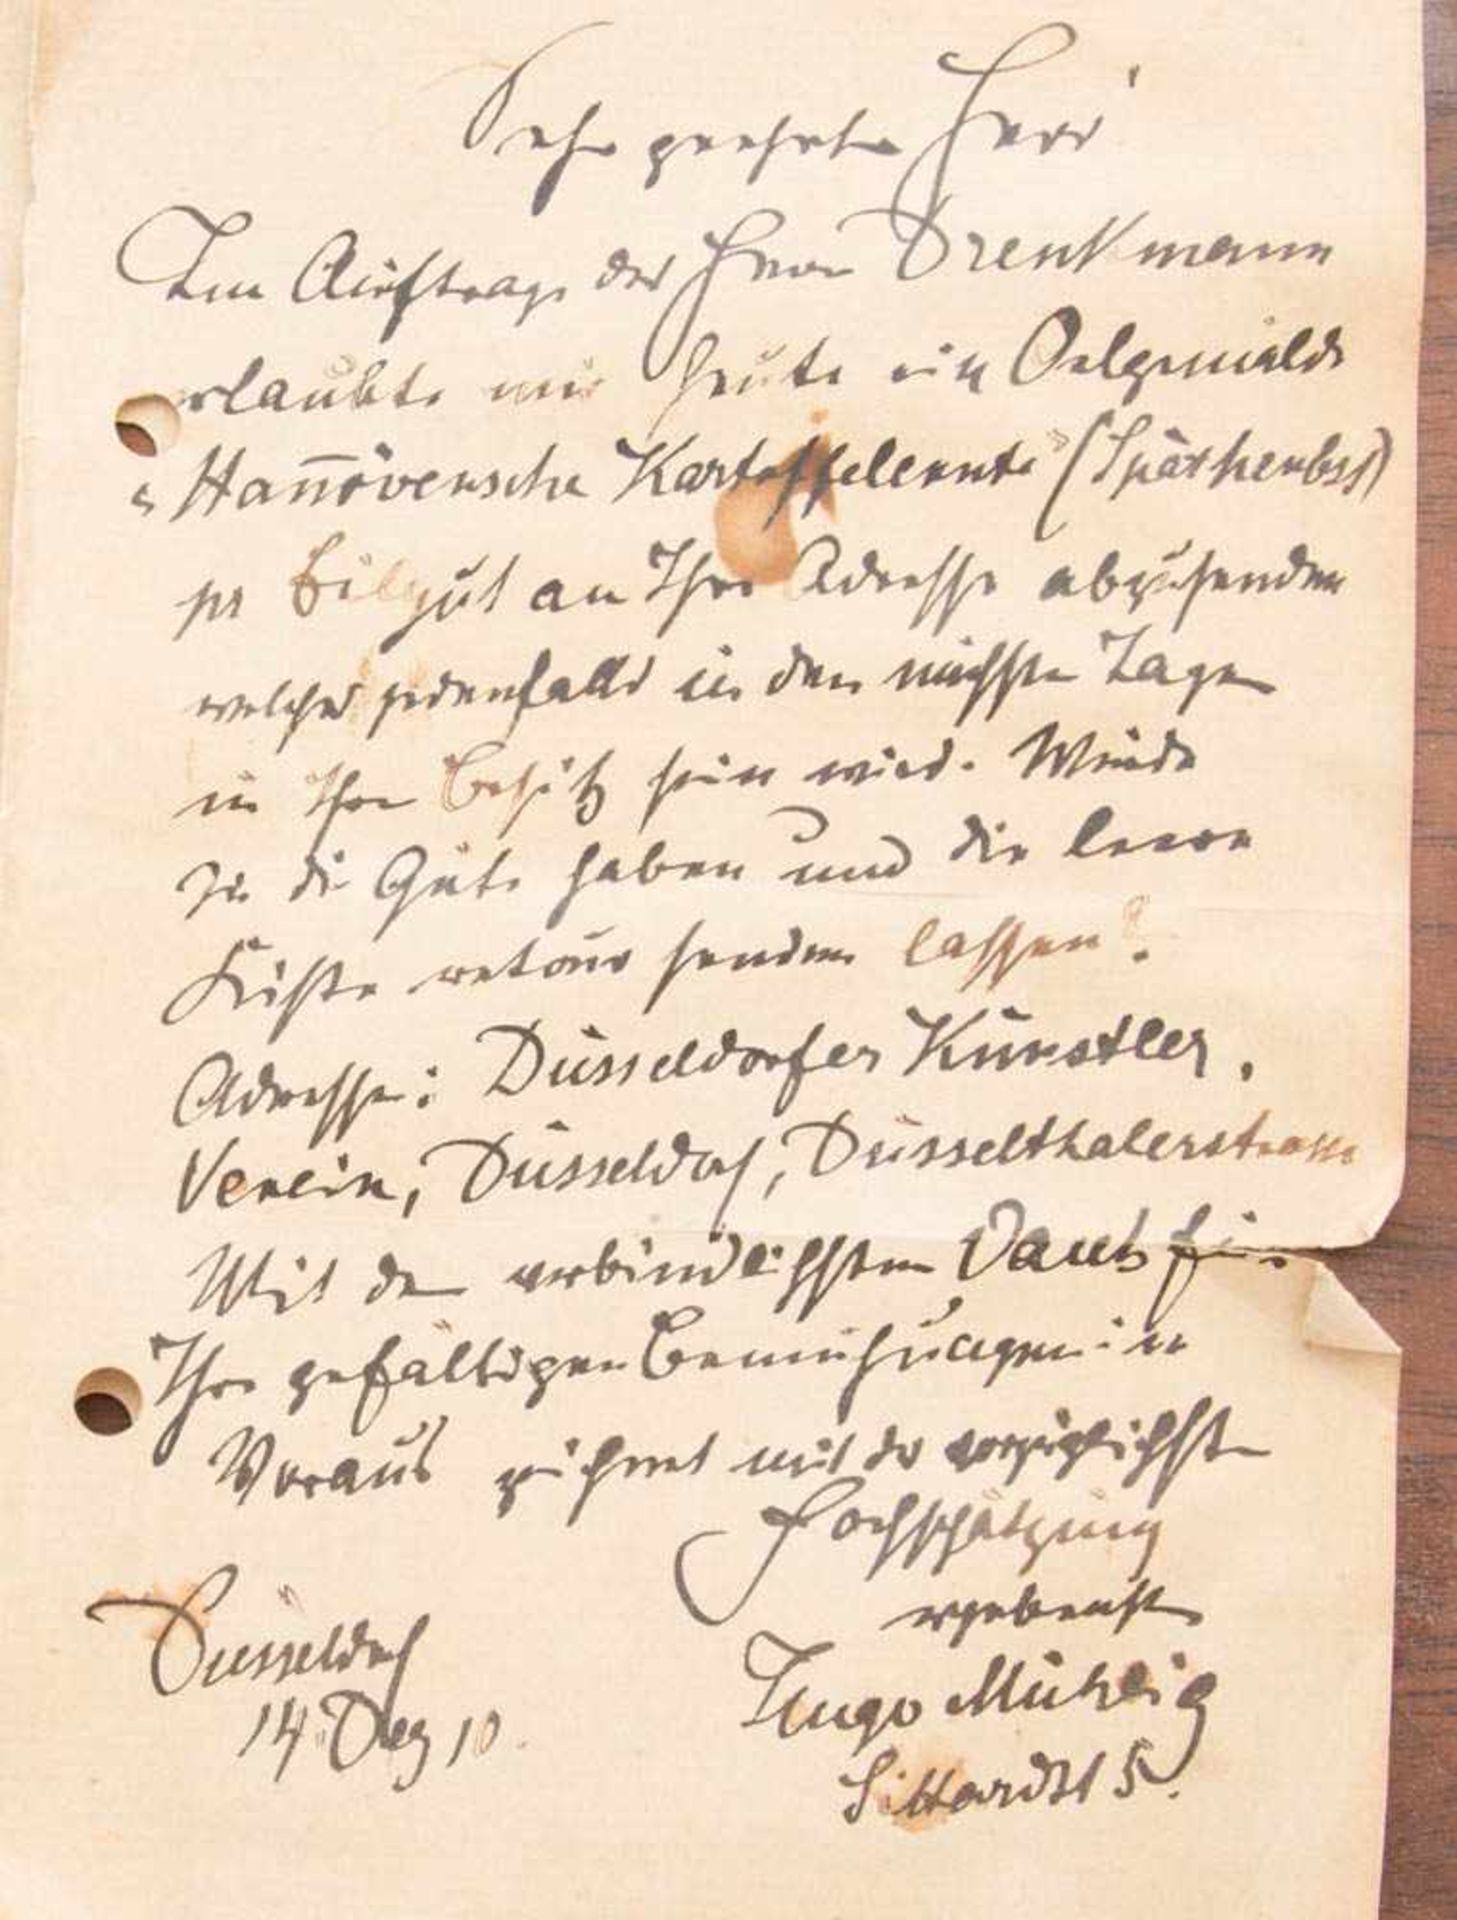 Sehr geehrter Herr!
Im Auftrage des Herrn Drenkmann
erlaubte mir heute ein Oelgemälde
"Hannöversche Kartoffelernte" (Spätherbst)
pr Eilgut an Ihre Adresse abzusenden
welches jedenfalls in den nächsten Tagen
in Ihrem Besitz sein wird. Würden
Sie die Güte haben und die leere
Kiste retour senden lassen?
Adresse: Düsseldorfer Künstler,
Verein, Düsseldorf, Düsselthalerstrasse
Mit dem verbindlichsten Dank für
Ihre gefälligen Bemühungen im
Voraus zeichnet mit der vorzüglichsten
Hochschätzung
ergebenst
Düsseldorf
14 Dez 10.
Hugo Mühlig
Sittardst 5.